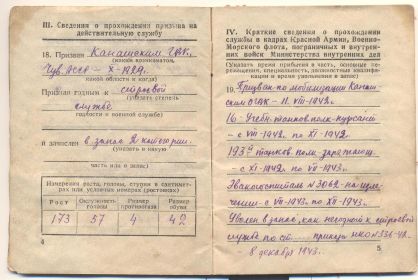 III. Сведения о прохождении призыва на
действительную службу
18. Призван Канашским ГВК.
(каким военкоматом,
Чув. АССР - X-1929.
какой области и когда)
Признан годным к строевой
(указать степень
службе
годности к военной службе)
и зачислен в запас 2 категории.
(указать в какую
часть или в запас)
Измерения роста, головы, ступни в сантимет-
рах или условных номерах (ростовках)
Рост
Окружность
головы
Размер
противогаза
Размер
обуви
173
57
4
42
4
IV. Краткие сведения о прохождении
службы в кадрах Красной Армии, Военно-
Морского флота, пограничных и внутрен-
них войск Министерства внутренних дел
(Указать время прибытия в часть, основные пе-
ремещения, специальность, должностные квалифи-
кации и время увольнения в запас)
19. Призван по мобилизации Канаш-
ским ОГВК - 11. VIII-1942г.
16 - Учебн. танков. полк - курсант
- с VIII-1942г. по XI-1942г.
193й танков. полк - заряжающ.
- с XI-1942г. по VII-1943г.
Эвакогоспиталь № 3062 - на изле-
чении - с VII-1943г. по XI-1943г.
Уволен в запас, как негодной к строевой
службе по ст. приказа НКО № 336-42г.
8 декабря 1943г.
5